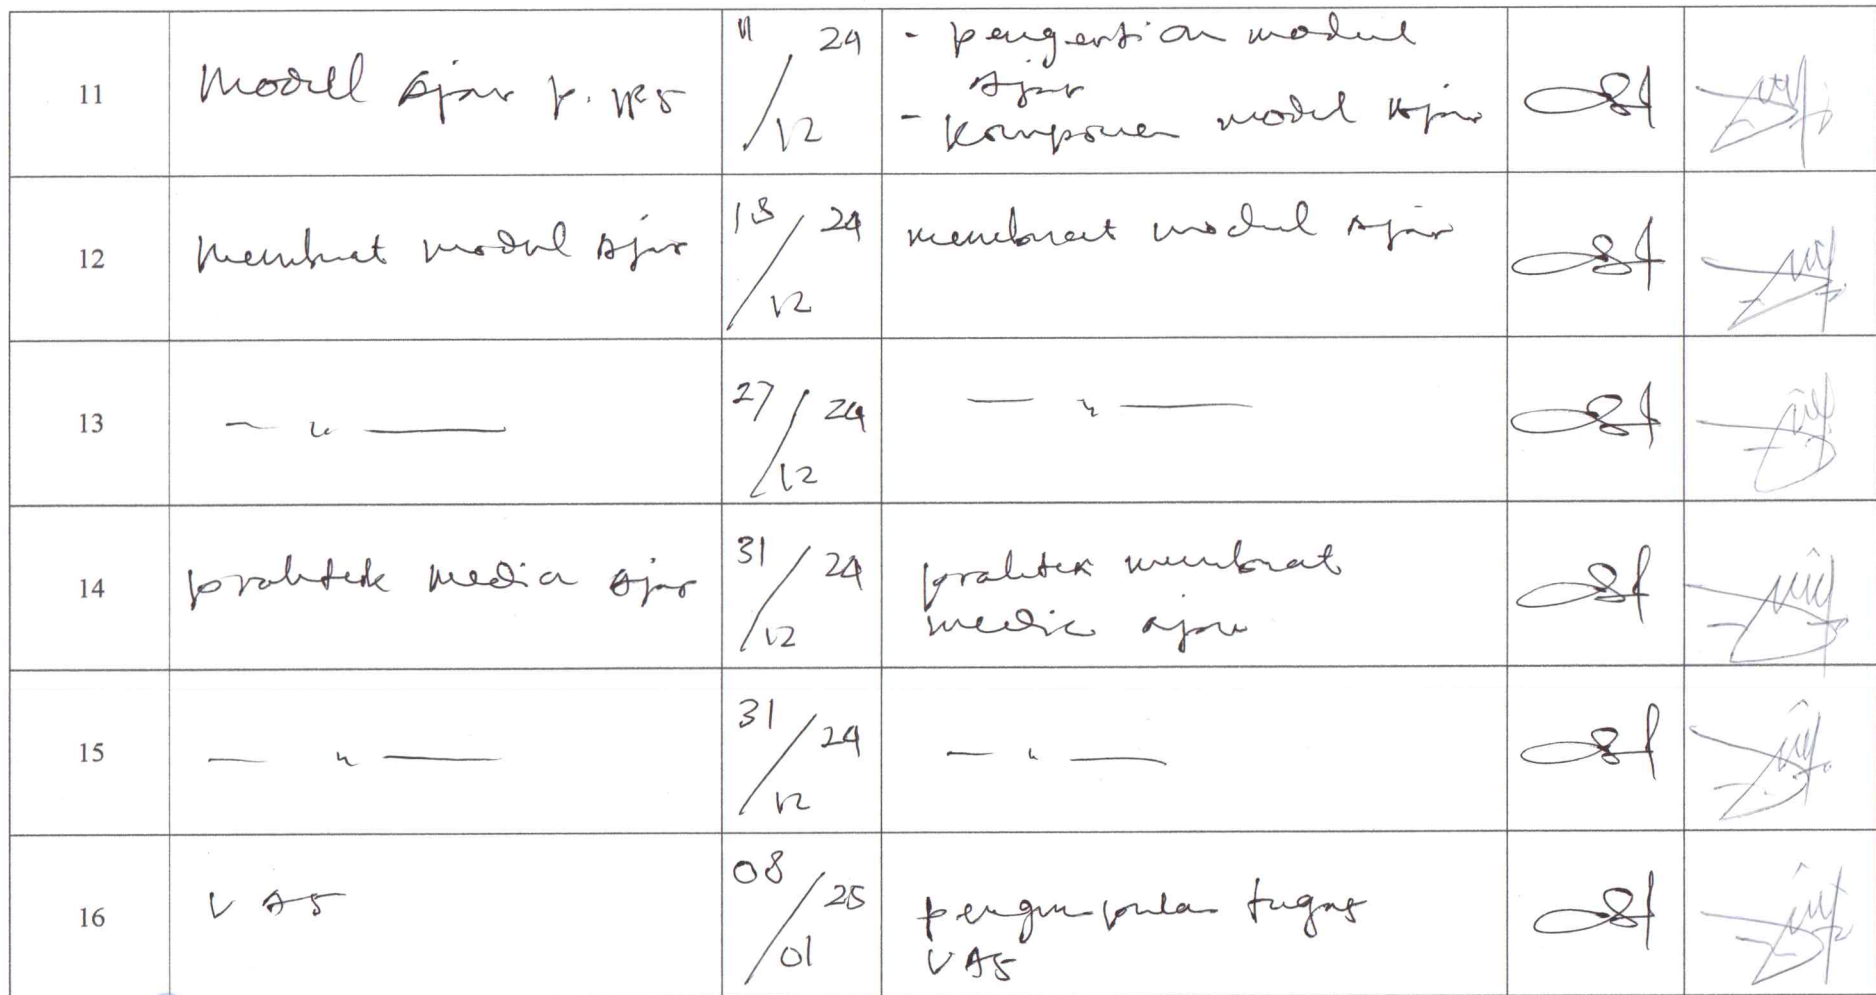 11
Modul Ajar p. IPS
11/12 24
- pengertian modul
Ajar
- Komponen modul Ajar
12
Membuat modul Ajar
18/12 24
membuat modul Ajar
13
— " —
27/12 24
— " —
14
praktek media Ajar
31/12 24
praktek membuat
media ajar
15
— " —
31/12 24
— " —
16
UAS
08/01 25
pengumpulan tugas
UAS